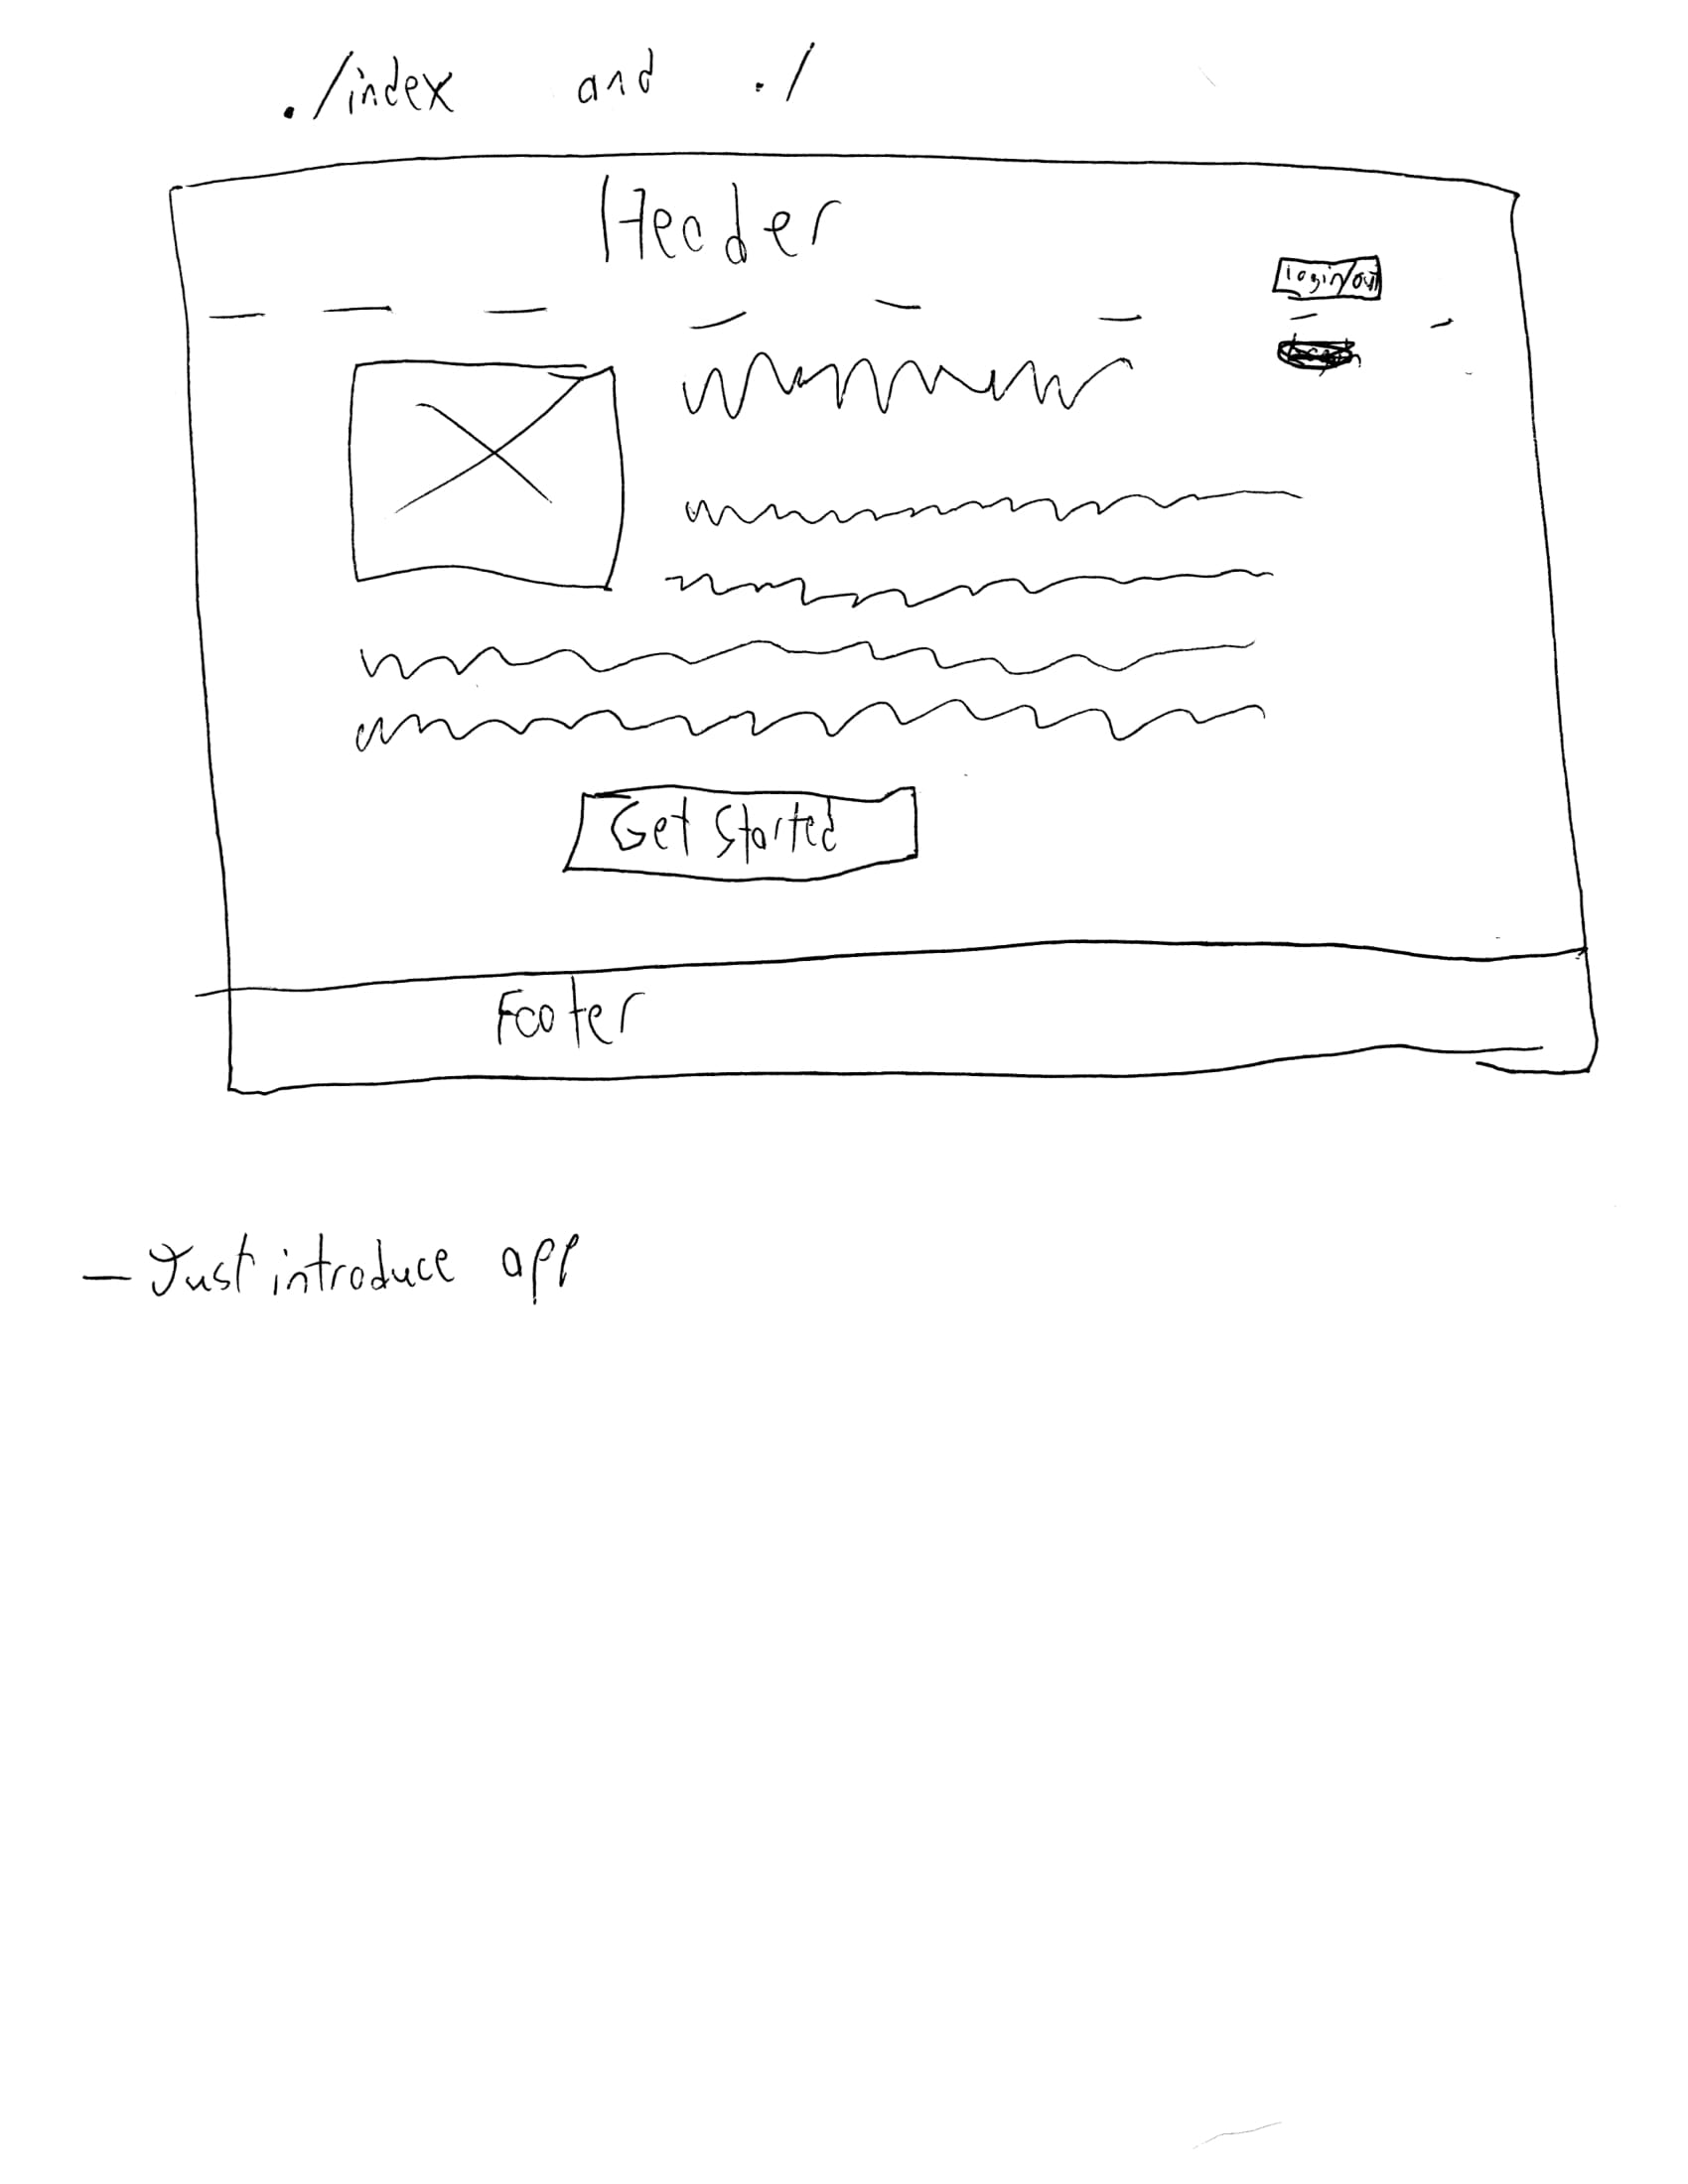 ./index and ./
Header
Login/out
Get Started
Footer
- Just introduce app